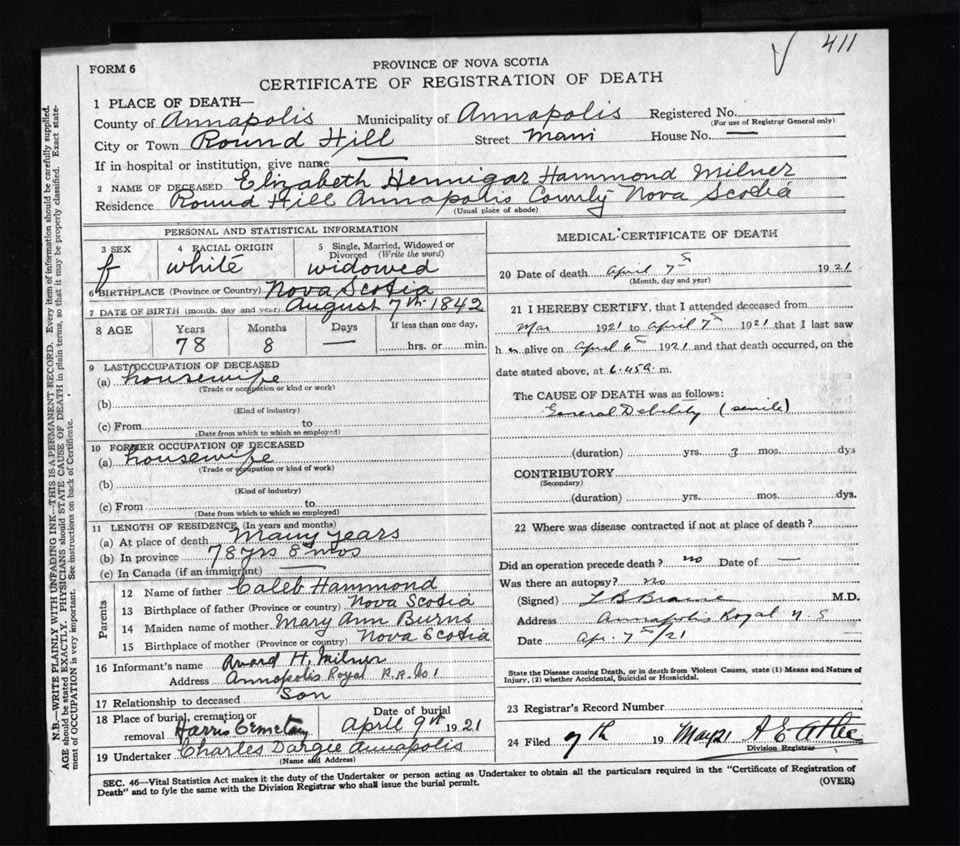 411
FORM 6
PROVINCE OF NOVA SCOTIA
CERTIFICATE OF REGISTRATION OF DEATH
1 PLACE OF DEATH—
County of Annapolis Municipality of Annapolis Registered No.
(For use of Registrar General only)
City or Town Round Hill Street Main House No. —
If in hospital or institution, give name —
2 NAME OF DECEASED Elizabeth Hennigar Hammond Milner
Residence Round Hill Annapolis County Nova Scotia
(Usual place of abode)
PERSONAL AND STATISTICAL INFORMATION
3 SEX 4 RACIAL ORIGIN 5 Single, Married, Widowed or
Divorced (Write the word)
f white widowed
6 BIRTHPLACE (Province or Country) Nova Scotia
7 DATE OF BIRTH (month, day and year) August 7th 1842
8 AGE Years Months Days If less than one day,
78 8 — hrs. or min.
9 LAST OCCUPATION OF DECEASED
(a) housewife
(Trade or occupation or kind or work)
(b)
(Kind of industry)
(c) From to
(Date from which to which so employed)
10 FORMER OCCUPATION OF DECEASED
(a) housewife
(Trade or occupation or kind of work)
(b)
(Kind of industry)
(c) From to
(Date from which to which so employed)
11 LENGTH OF RESIDENCE (In years and months)
(a) At place of death many years
(b) In province 78 yrs 8 mos
(c) In Canada (if an immigrant) —
Parents
12 Name of father Caleb Hammond
13 Birthplace of father (Province or country) Nova Scotia
14 Maiden name of mother Mary Ann Burns
15 Birthplace of mother (Province or country) Nova Scotia
16 Informant's name Avard H. Milner
Address Annapolis Royal R.R. No 1
17 Relationship to deceased Son
18 Place of burial, cremation or Date of burial
removal Harris Cemetary April 9th 1921
19 Undertaker Charles Dargie Annapolis
(Name and Address)
MEDICAL CERTIFICATE OF DEATH
20 Date of death April 7th 1921
(Month, day and year)
21 I HEREBY CERTIFY, that I attended deceased from
Mar 1921 to April 7th 1921 that I last saw
her alive on April 6th 1921 and that death occurred, on the
date stated above, at 6.45 a. m.
The CAUSE OF DEATH was as follows:
General Debility (senile)
(duration) yrs. 3 mos. dys
CONTRIBUTORY
(Secondary)
(duration) yrs. mos. dys.
22 Where was disease contracted if not at place of death?
Did an operation precede death? no Date of —
Was there an autopsy? no
(Signed) L B Braine M.D.
Address Annapolis Royal N. S
Date Apr 7th/21
State the Disease causing Death, or in death from Violent Causes, state (1) Means and Nature of
Injury, (2) whether Accidental, Suicidal or Homicidal.
23 Registrar's Record Number
24 Filed 7th 19 May 21
Division Registrar
SEC. 46—Vital Statistics Act makes it the duty of the Undertaker or person acting as Undertaker to obtain all the particulars required in the "Certificate of Registration of
Death" and to fyle the same with the Division Registrar who shall issue the burial permit.
(OVER)
N.B.—WRITE PLAINLY, WITH UNFADING INK—THIS IS A PERMANENT RECORD. Every item of information should be carefully supplied.
AGE should be stated EXACTLY. PHYSICIANS should STATE CAUSE OF DEATH in plain terms, so that it may be properly classified. Exact state-
ment of OCCUPATION is very important. See instructions on back of Certificate.